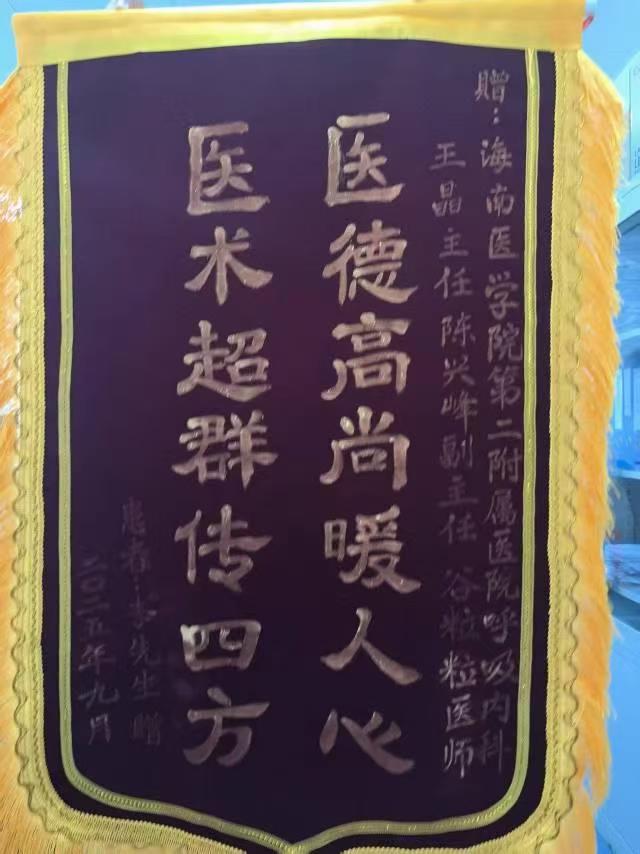 赠：海南医学院第二附属医院呼吸内科
王晶主任陈兴峰副主任 谷粒粒医师
医德高尚暖人心
医术超群传四方
患者：李先生赠
二〇二五年九月